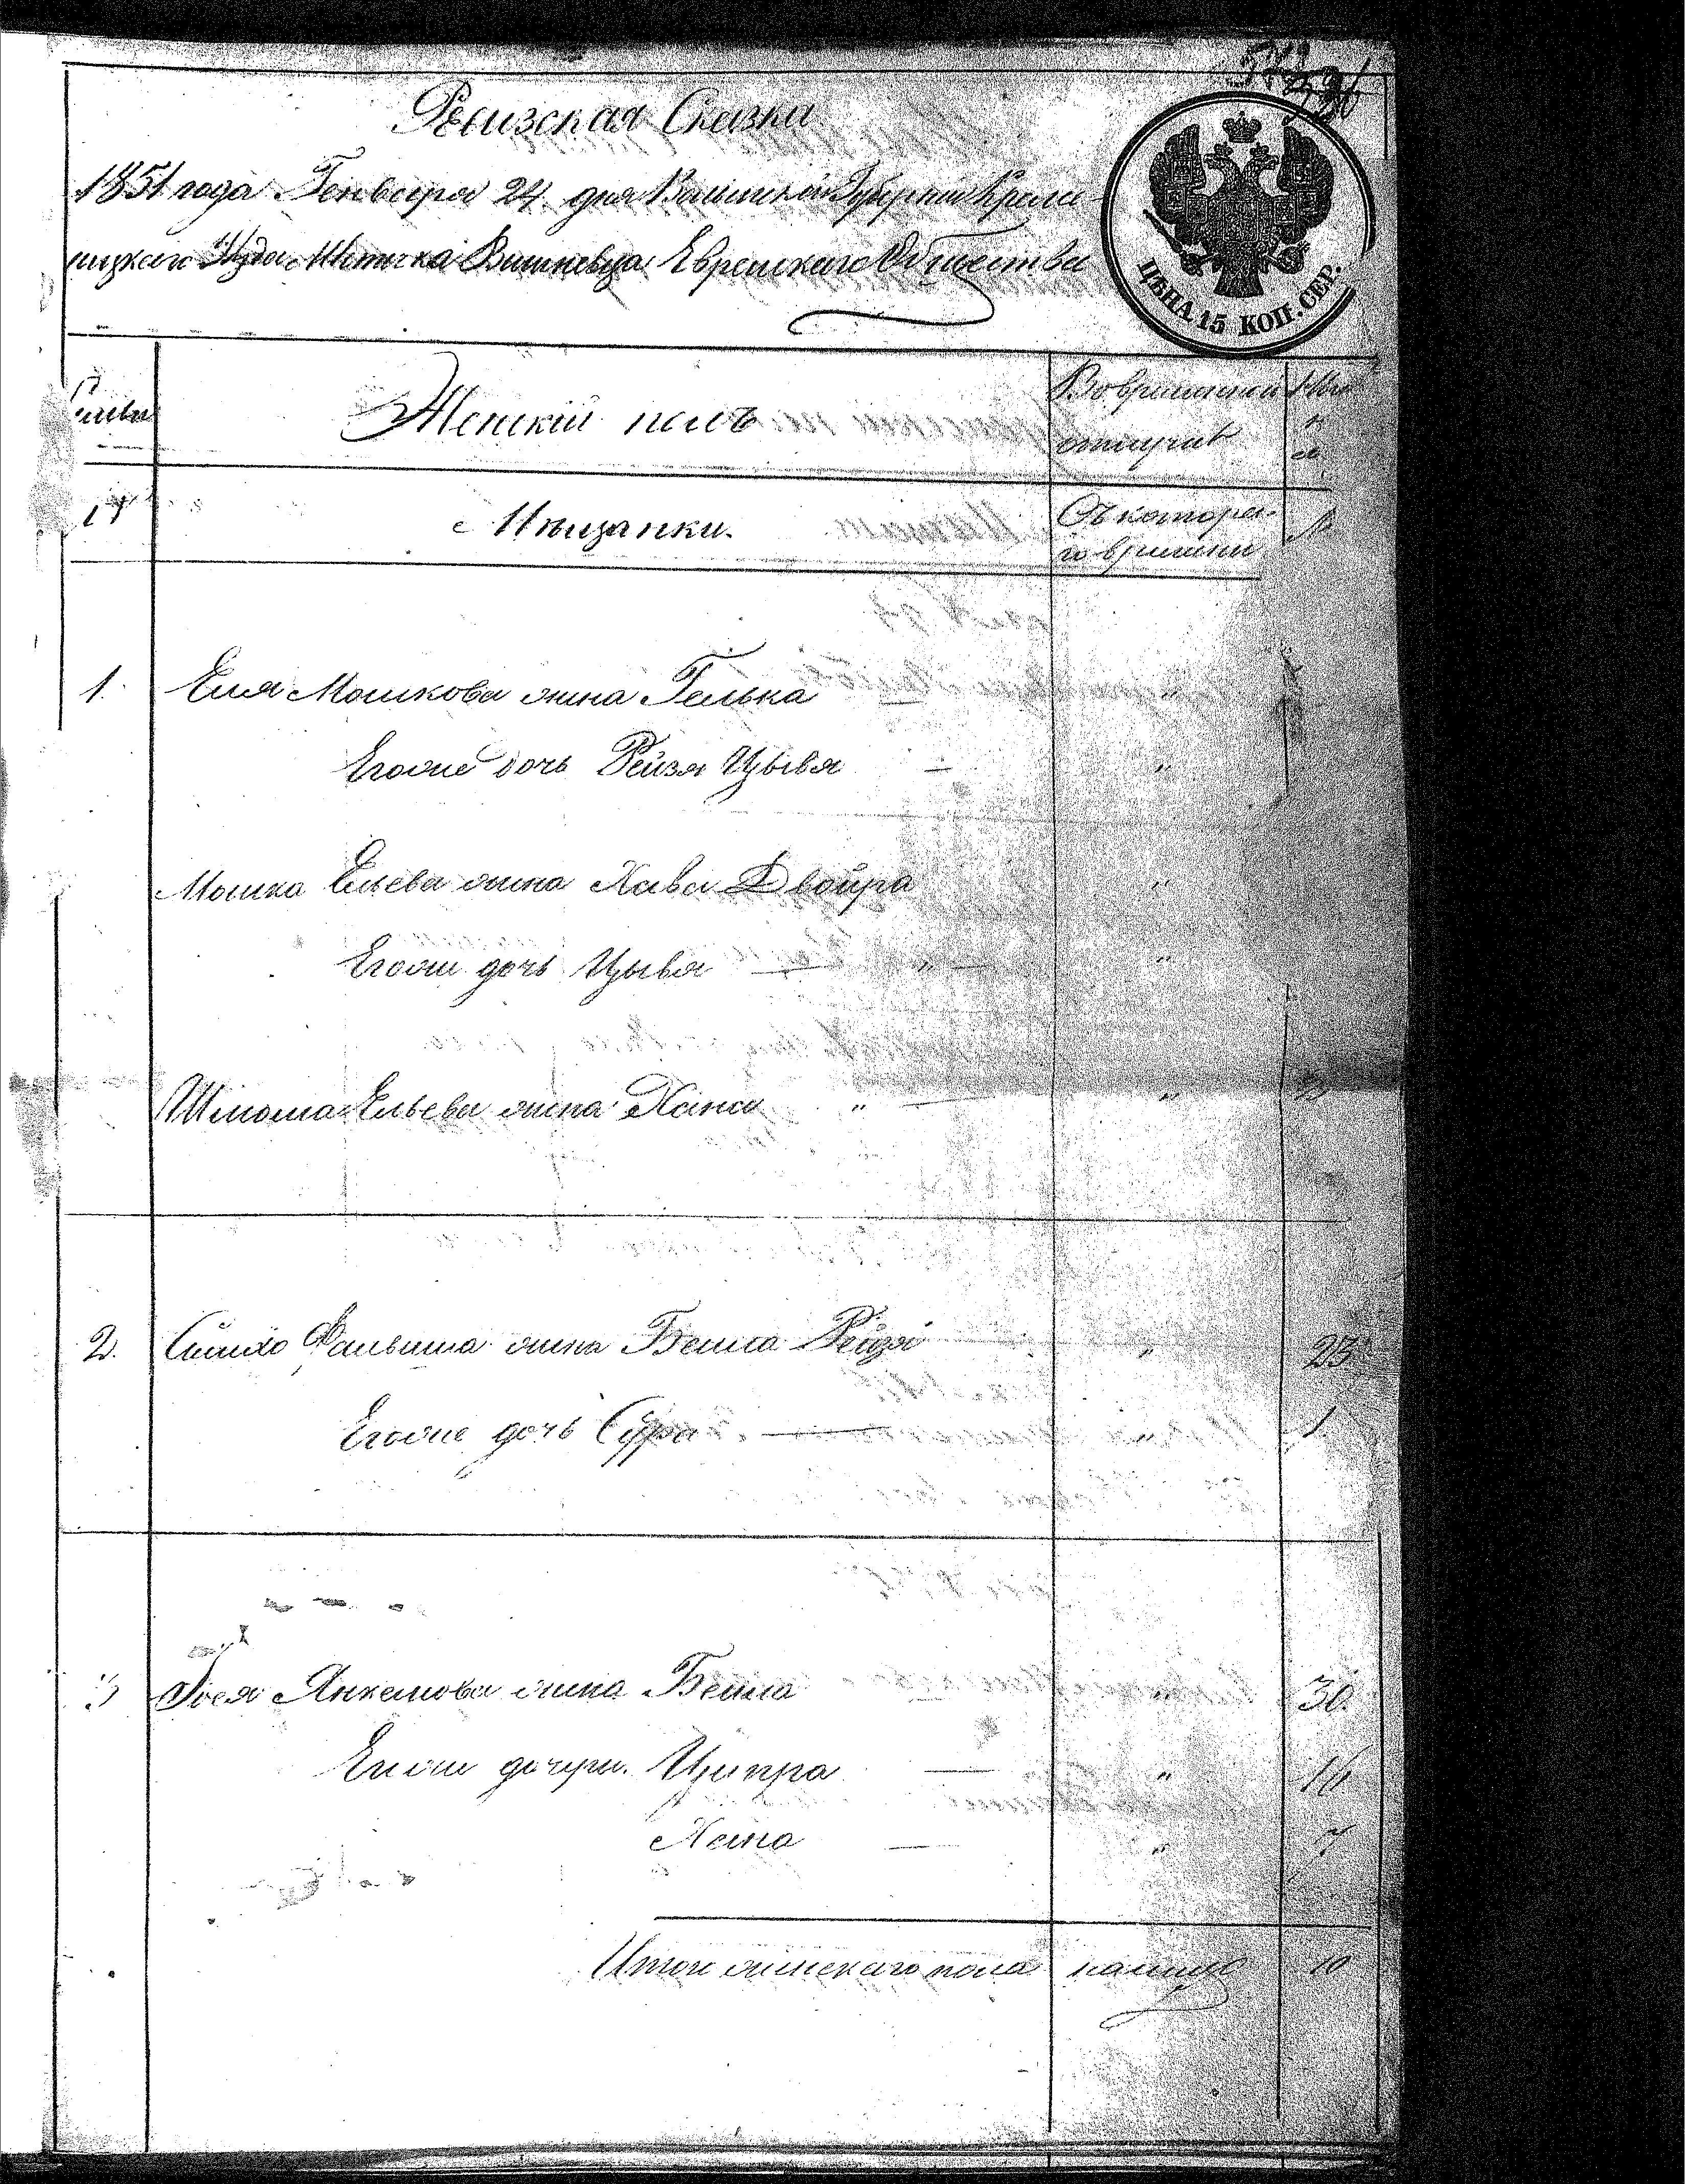 Ревизская Сказка
1851 года Генваря 24 дня Волынской Губернии Креме-
нецкаго Уезда Местечка Вишневца Еврейскаго Общества
ЦѢНА 15 КОП. СЕР.
Женскій полъ
Во временной
отлучкѣ
Мѣщанки.
Съ котора-
го времени
1. Еля Мошкова жена Гелька
Егоже дочь Рейзя Цывья "
Мошка Ельева жена Хава Двойра "
Егоже дочь Цывья " "
Шлиома Ельева жена Хана " "
2. Симхо Фальвиша жена Бейла Рейзя " 23
Егоже дочь Сура " 1
3 Янкелиова жена Бейла " 30
Егоже дочери Ципра " 16
Хана " 7
Итого женскаго пола налицо 10